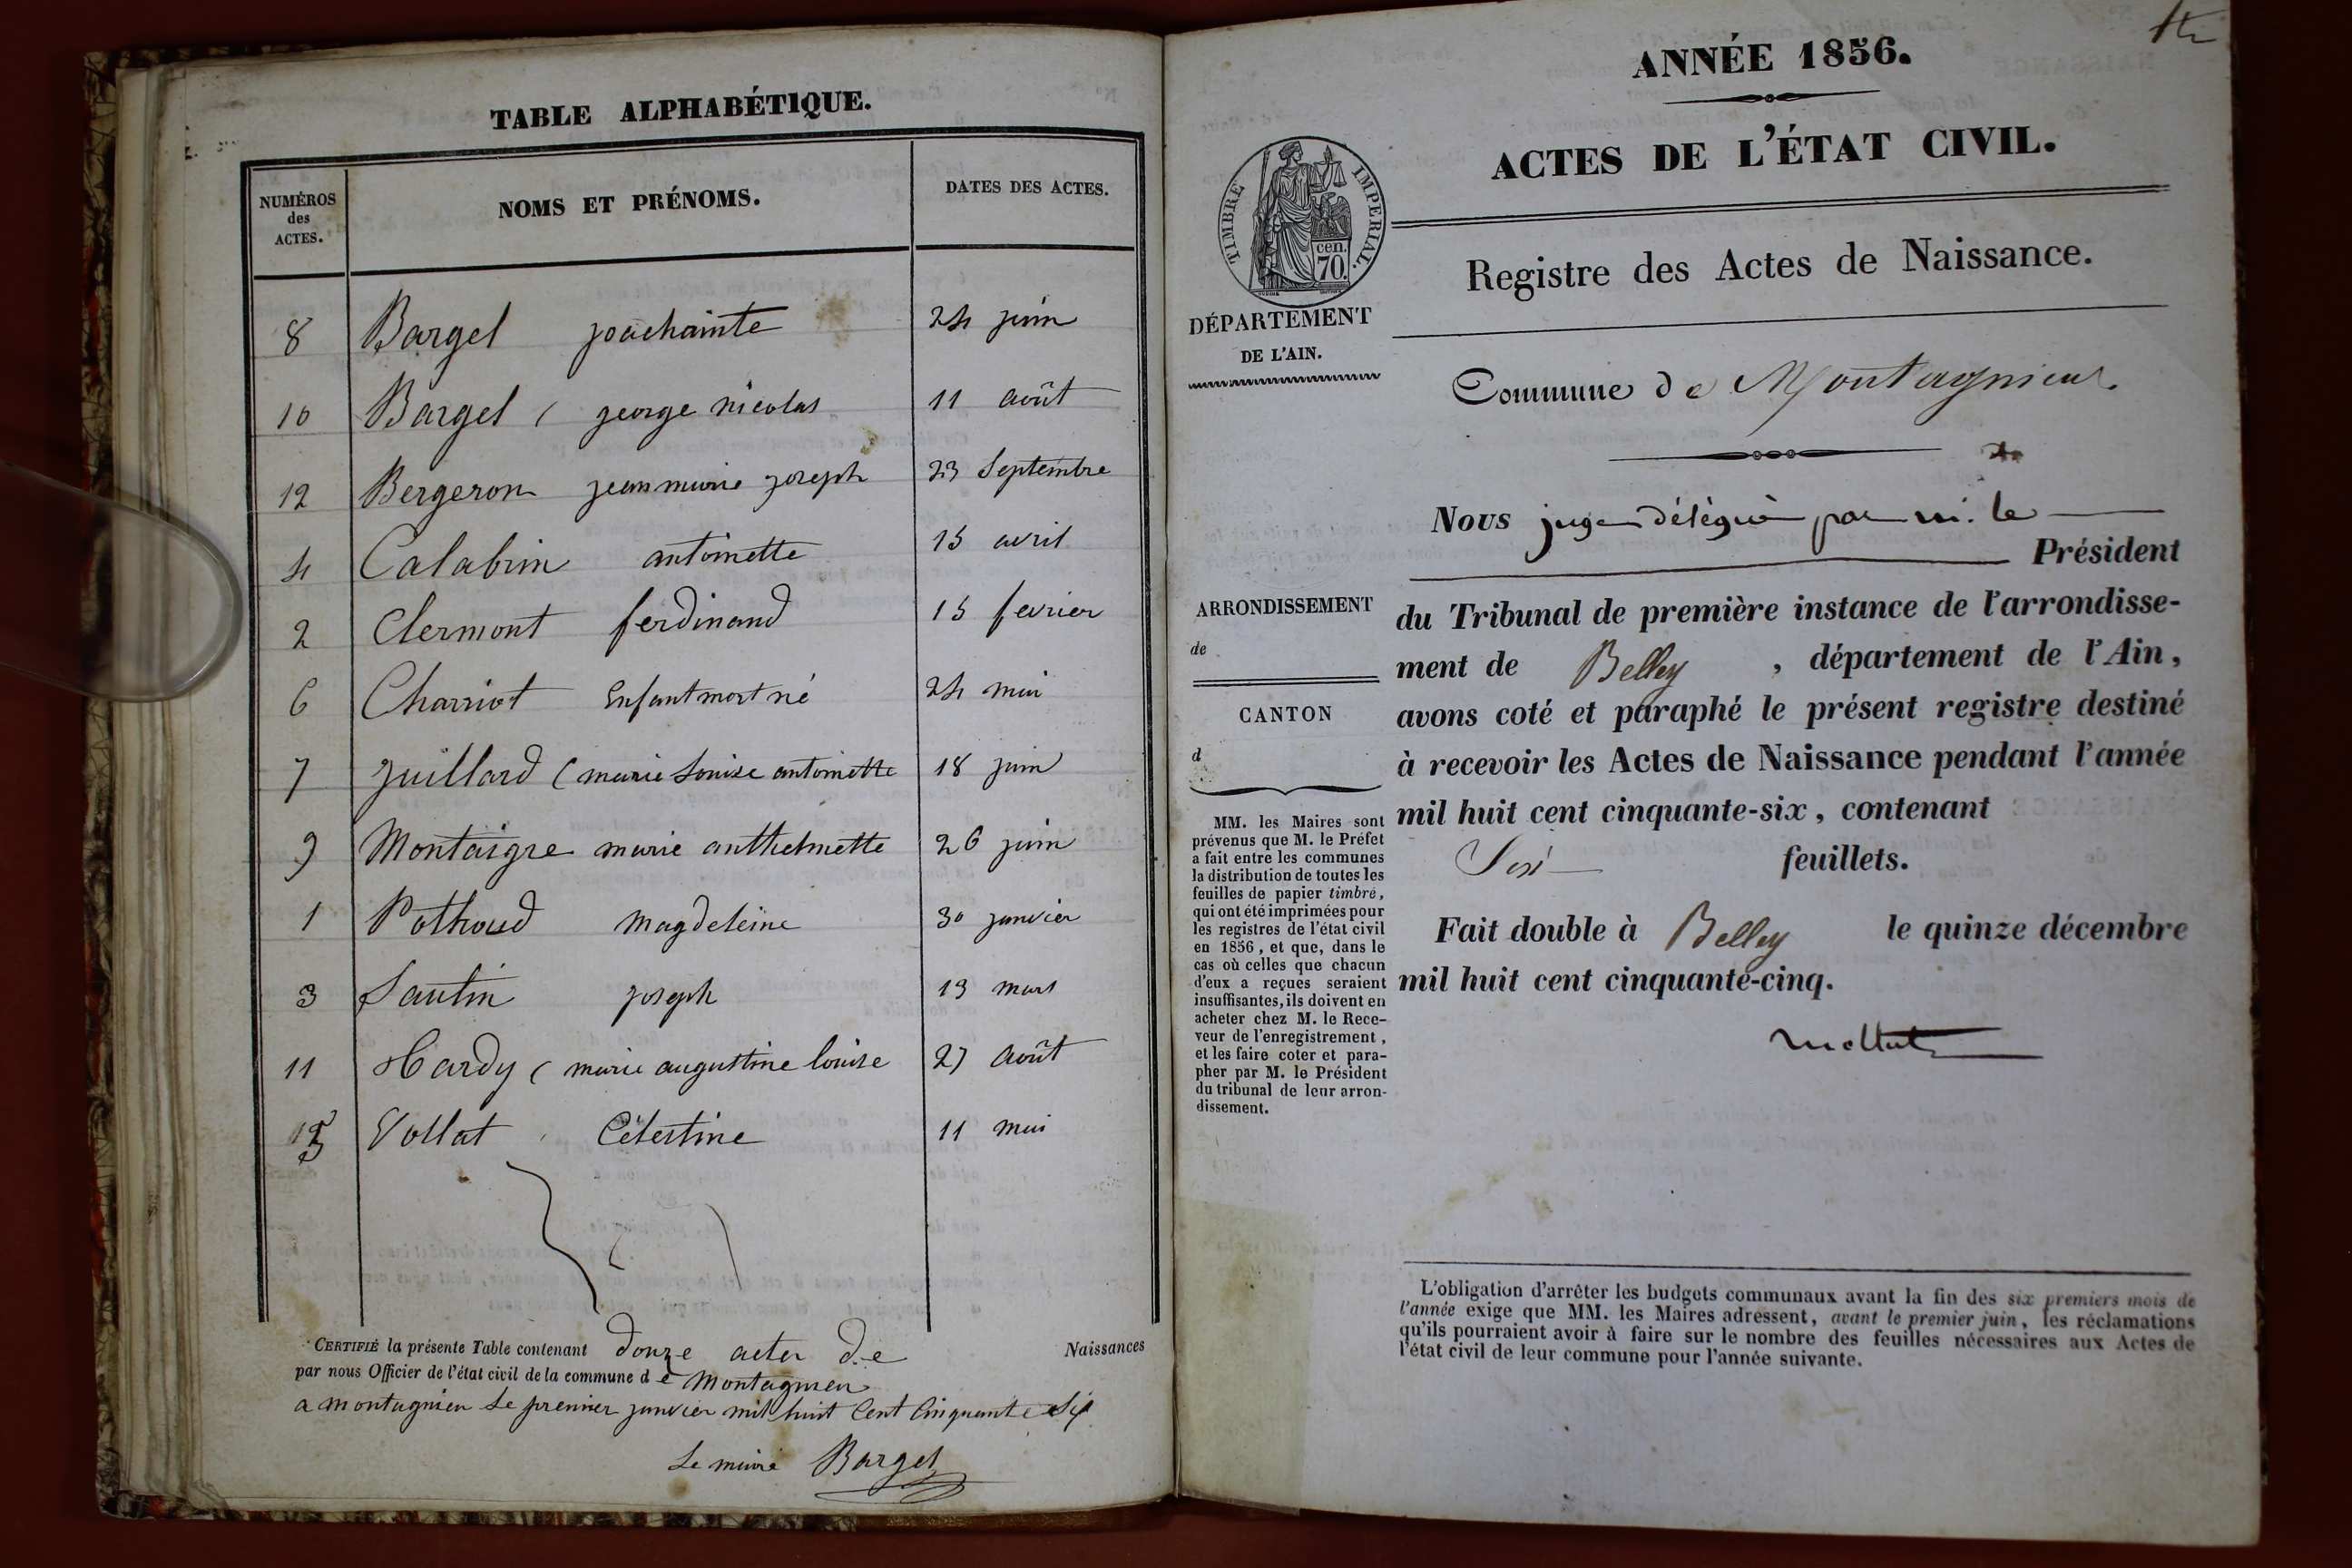 TABLE ALPHABÉTIQUE.
NUMÉROS des ACTES.
NOMS ET PRÉNOMS.
DATES DES ACTES.
8 Bargel joachainte 24 juin
10 Bargel ( george nicolas 11 août
12 Bergeron jean marie joseph 23 Septembre
4 Calabrin antoinette 15 avril
2 Clermont ferdinand 15 fevrier
6 Charriot Enfant mort né 24 mai
7 juillard ( marie Louise antoinette 18 juin
9 Montaigre marie anthelmette 26 juin
1 Pothoud Magdeleine 30 janvier
3 Sautin joseph 13 mars
11 Hardy ( marie augustine louise 27 août
5 Vollat Célestine 11 mai
CERTIFIÉ la présente Table contenant douze actes de Naissances
par nous Officier de l'état civil de la commune de Montagnieu
a montagnieu Le premier janvier mil huit Cent Cinquante Six
Le maire Bargel
ANNÉE 1856.
ACTES DE L'ÉTAT CIVIL.
TIMBRE IMPERIAL.
cen.
70.
Registre des Actes de Naissance.
DÉPARTEMENT
DE L'AIN.
Commune de Montagnieu.
Nous juge délégué par m. le
Président
ARRONDISSEMENT
de
CANTON
d
du Tribunal de première instance de l'arrondisse-
ment de Belley , département de l'Ain,
avons coté et paraphé le présent registre destiné
à recevoir les Actes de Naissance pendant l'année
mil huit cent cinquante-six, contenant
Six feuillets.
Fait double à Belley le quinze décembre
mil huit cent cinquante-cinq.
MM. les Maires sont
prévenus que M. le Préfet
a fait entre les communes
la distribution de toutes les
feuilles de papier timbré,
qui ont été imprimées pour
les registres de l'état civil
en 1856, et que, dans le
cas où celles que chacun
d'eux a reçues seraient
insuffisantes, ils doivent en
acheter chez M. le Rece-
veur de l'enregistrement,
et les faire coter et para-
pher par M. le Président
du tribunal de leur arron-
dissement.
L'obligation d'arrêter les budgets communaux avant la fin des six premiers mois de
l'année exige que MM. les Maires adressent, avant le premier juin, les réclamations
qu'ils pourraient avoir à faire sur le nombre des feuilles nécessaires aux Actes de
l'état civil de leur commune pour l'année suivante.